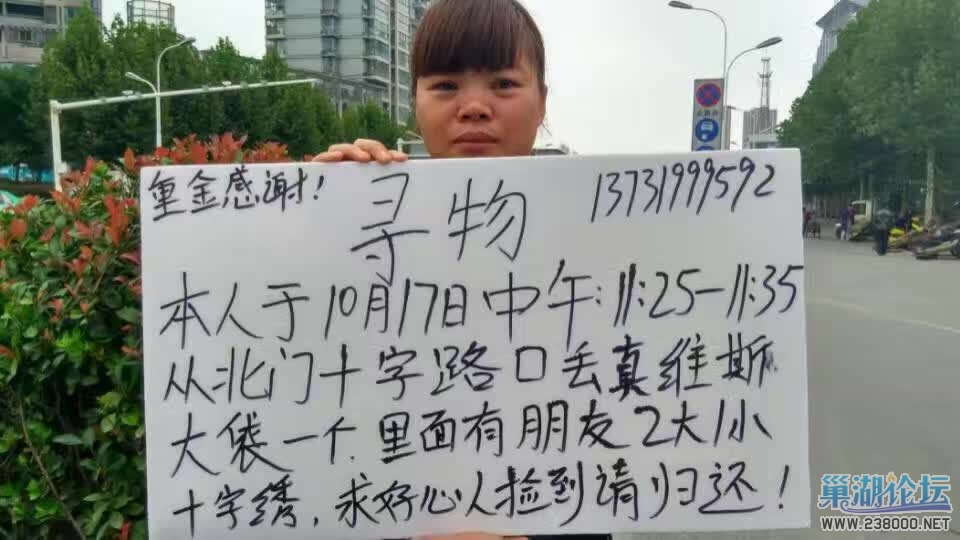 重金感谢!
寻物
13731999592
本人于10月17日中午:11:25-11:35
从北门十字路口丢真维斯
大袋一个.里面有朋友2大1小
十字绣,求好心人捡到请归还!
巢湖论坛
WWW.238000.NET